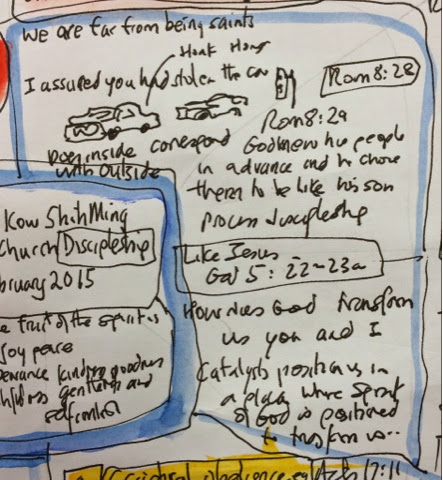 We are far from being saints
Honk Honk
I assured you had stolen the car
Rom 8:28
Rom 8:29
Does inside correspond
with outside
God knew his people
in advance and he chose
them to be like his son
process discipleship
Kow Shih Ming
Church Discipleship
bruary 2015
e fruit of the spirit is
joy peace
kindness goodness
gentleness and
self control
Like Jesus
Gal 5: 22-23a
How does God transform
us you and I
Catalysts position us in
a place where Spirit
of God is positioned
to transform us...
obedience eg 17:11